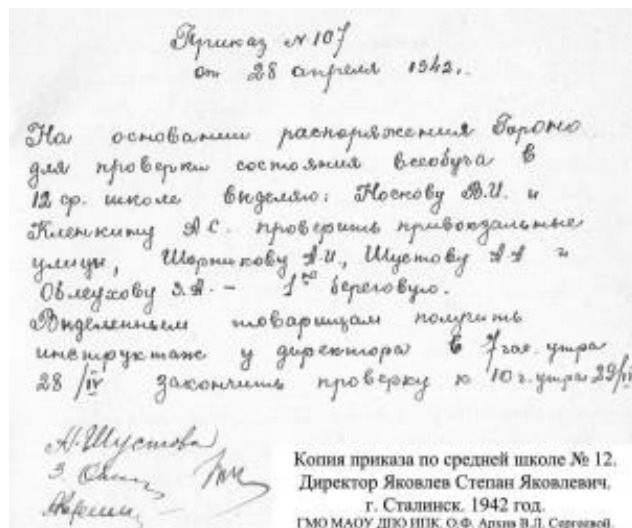 Приказ № 107
от 28 апреля 1942.
На основании распоряжения ГорОНО
для проверки состояния всеобуча в
12 ср. школе выделяю: Носкову В.И. и
Кленкину А.С. проверить привокзальные
улицы, Шорникову А.И., Шустову А.А и
Облеухову З.А. – 1ую береговую.
Выделенным товарищам получить
инструктаж у директора в 7 час. утра
28/IV закончить проверку к 10 ч. утра 29/IV
А.Шустова
Копия приказа по средней школе № 12.
Директор Яковлев Степан Яковлевич.
г. Сталинск. 1942 год.
ГМО МАОУ ДПО ИПК. О.Ф. Архив В.Л. Сергеевой.